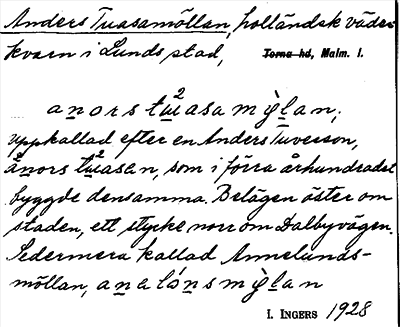 Anders Tuasamöllan, holländsk väder-
kvarn i Lunds stad, Torna hd, Malm. l.
anors tu²asa mỳlan;
uppkallad efter en Anders Tuvesson,
ånors tu²asan, som i förra århundradet
byggde densamma. Belägen öster om
staden, ett stycke norr om Dalbyvägen.
Sedermera kallad Annelunds-
möllan, analónsmỳlan
I. INGERS 1928